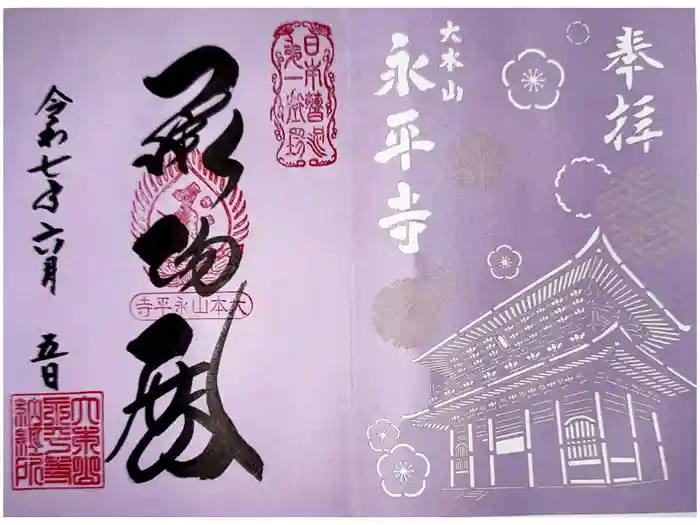 奉拝
大本山
永平寺
日本曹洞第一道場
承陽殿
大本山永平寺
令和七年六月五日
大本山
永平寺
納経所